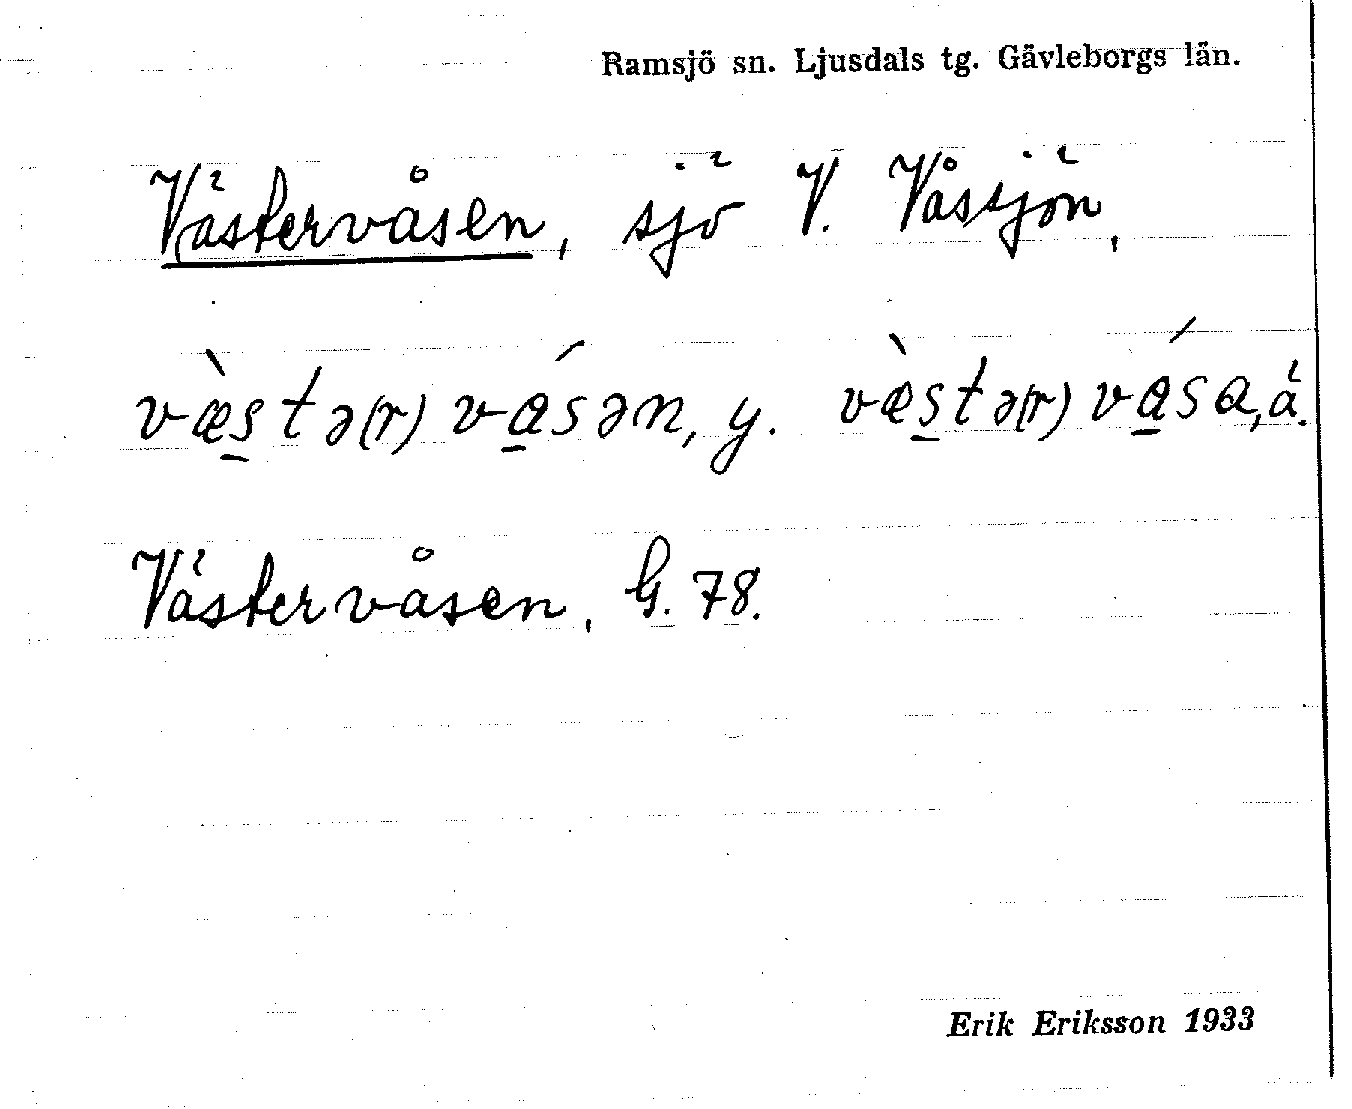 Ramsjö sn. Ljusdals tg. Gävleborgs län.
Västervåsen, sjö V. Våssjön,
væ̀stə(r)vásən, y. væ̀stə(r)vása, ä.
Västervåsen, G. 78.
Erik Eriksson 1933